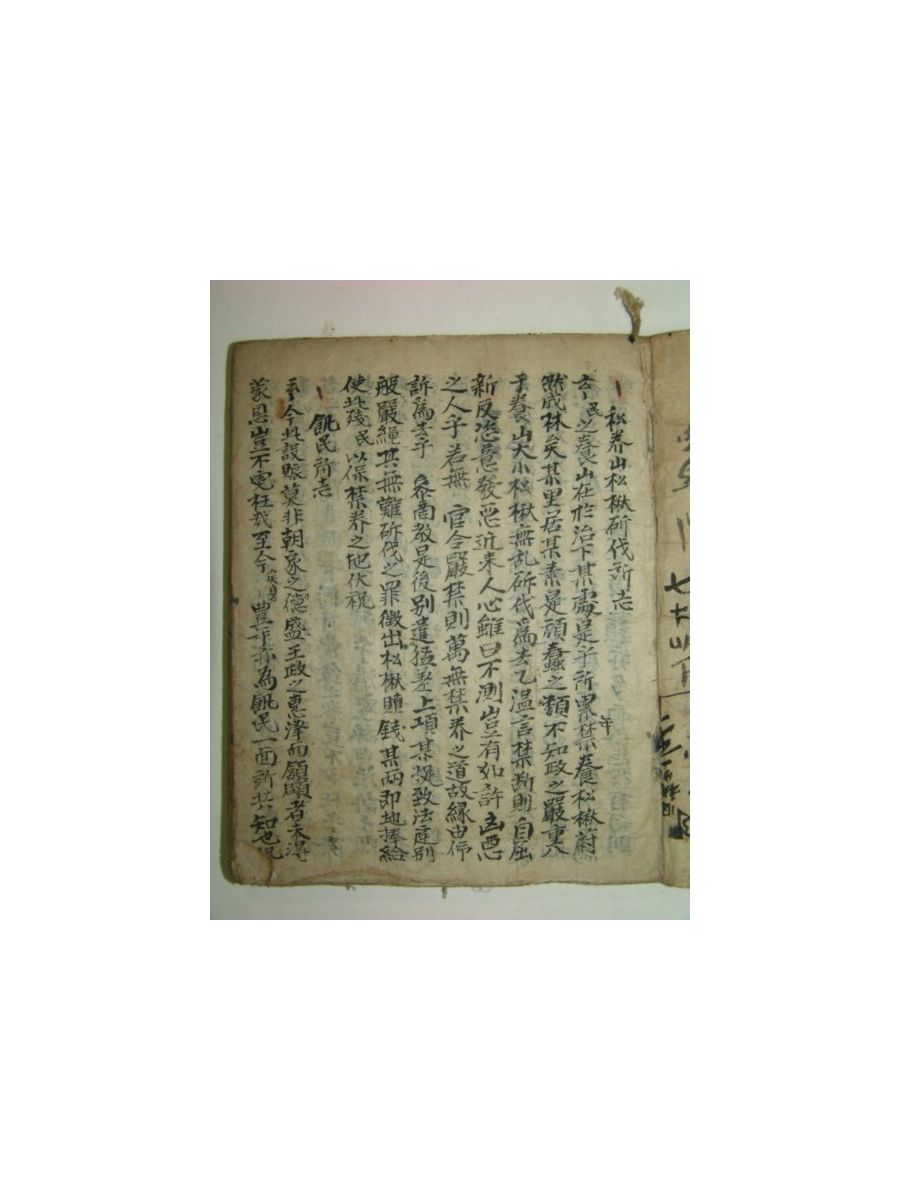 松养山松楸斫伐所志
去 民之養山在於治下某處是乎所累年禁養松楸蔚
然成林矣某里居某素是頑蠢之類不知政之嚴重入
于養山大小松楸無乱斫伐爲去乙温言禁断則自屈
新反恣意發惡近来人心雖曰不測豈有如許凶悪
之人乎若無 官令嚴禁則萬無禁养之道故緣由仰
訴爲去乎 叅商敎是後別遣猛差上項某捉致法庭別
般嚴繩其無難斫伐之罪徵出松楸贖錢某兩即地捧給
使此殘民以保禁养之地伏祝
飢民所志
云云今此設賑莫非朝家之德盛王政之惠澤而顧顯者未得
蒙恩豈不寃枉哉至今 豊年亦為飢民一面所共知也况